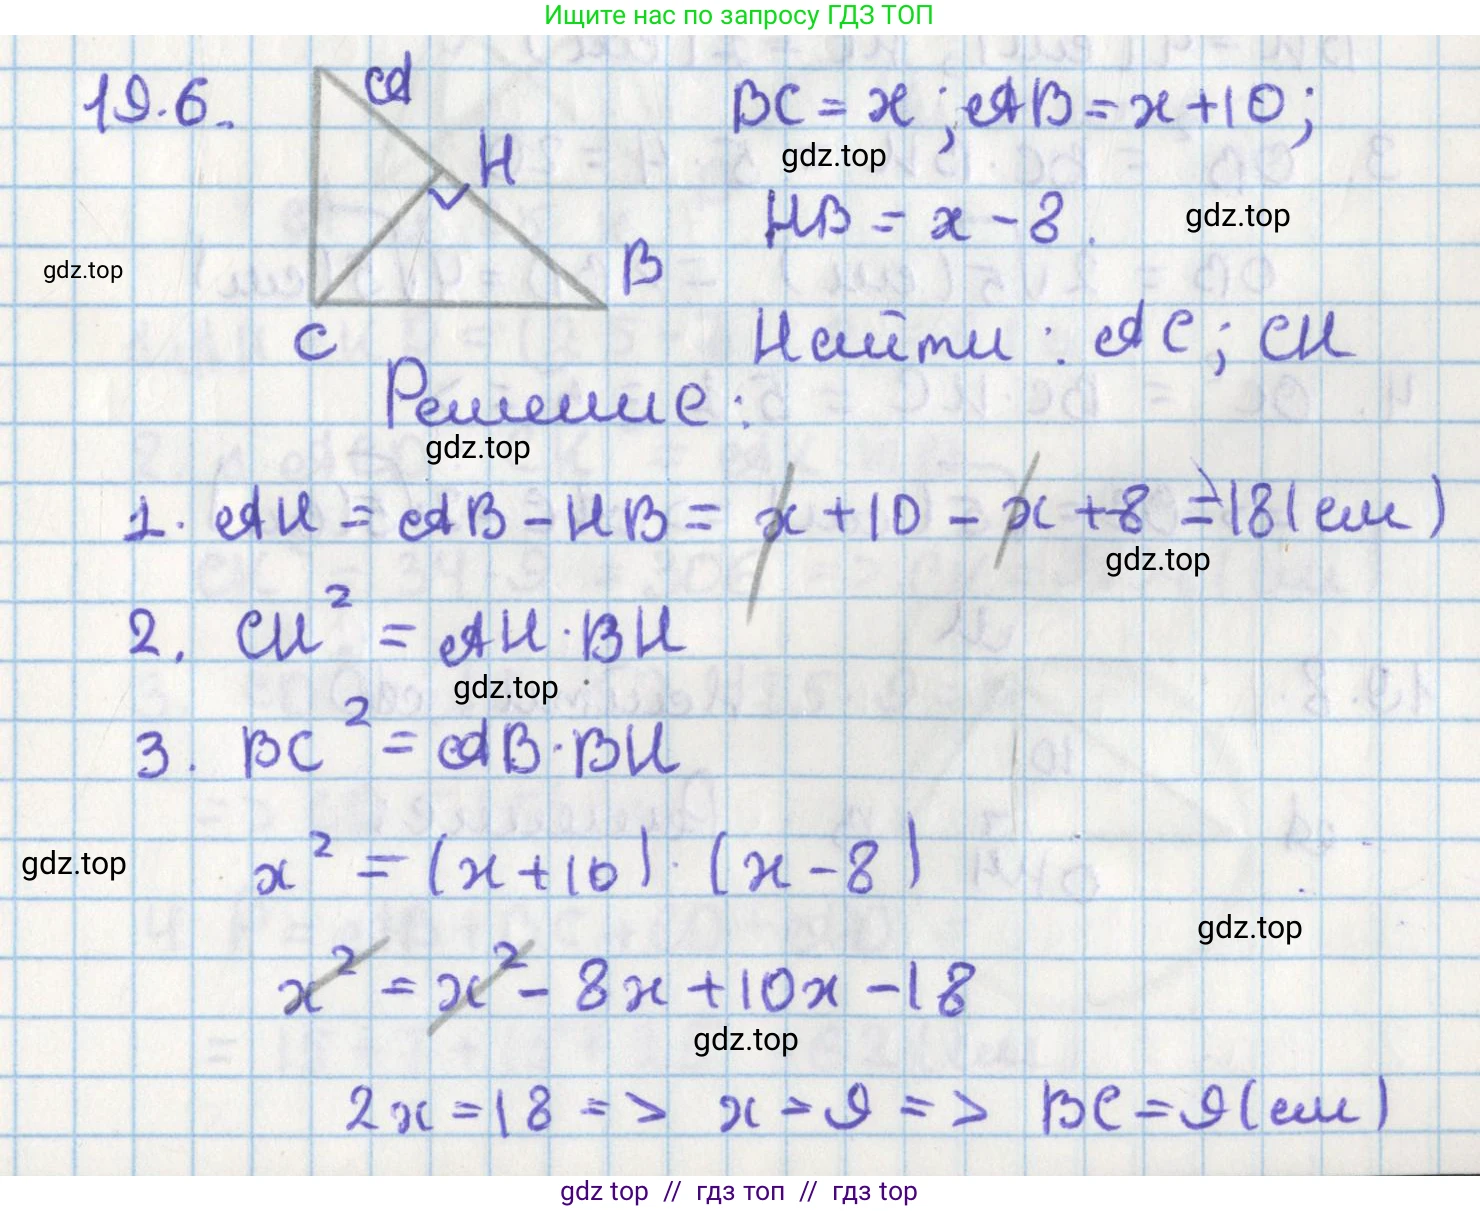 Ищите нас по запросу ГДЗ ТОП
19.6.
A
H
B
C
BC = x ; AB = x + 10 ;
gdz.top
HB = x - 8 .
gdz.top
gdz.top
Найти : AC ; CH
Решение :
gdz.top
1. AH = AB - HB = x + 10 - x + 8 = 18 (см)
gdz.top
2. CH² = AH · BH
gdz.top
3. BC² = AB · BH
x² = (x + 10) · (x - 8)
gdz.top
gdz.top
x² = x² - 8x + 10x - 18
gdz.top
2x = 18 => x = 9 => BC = 9 (см)
gdz top // гдз топ // гдз top